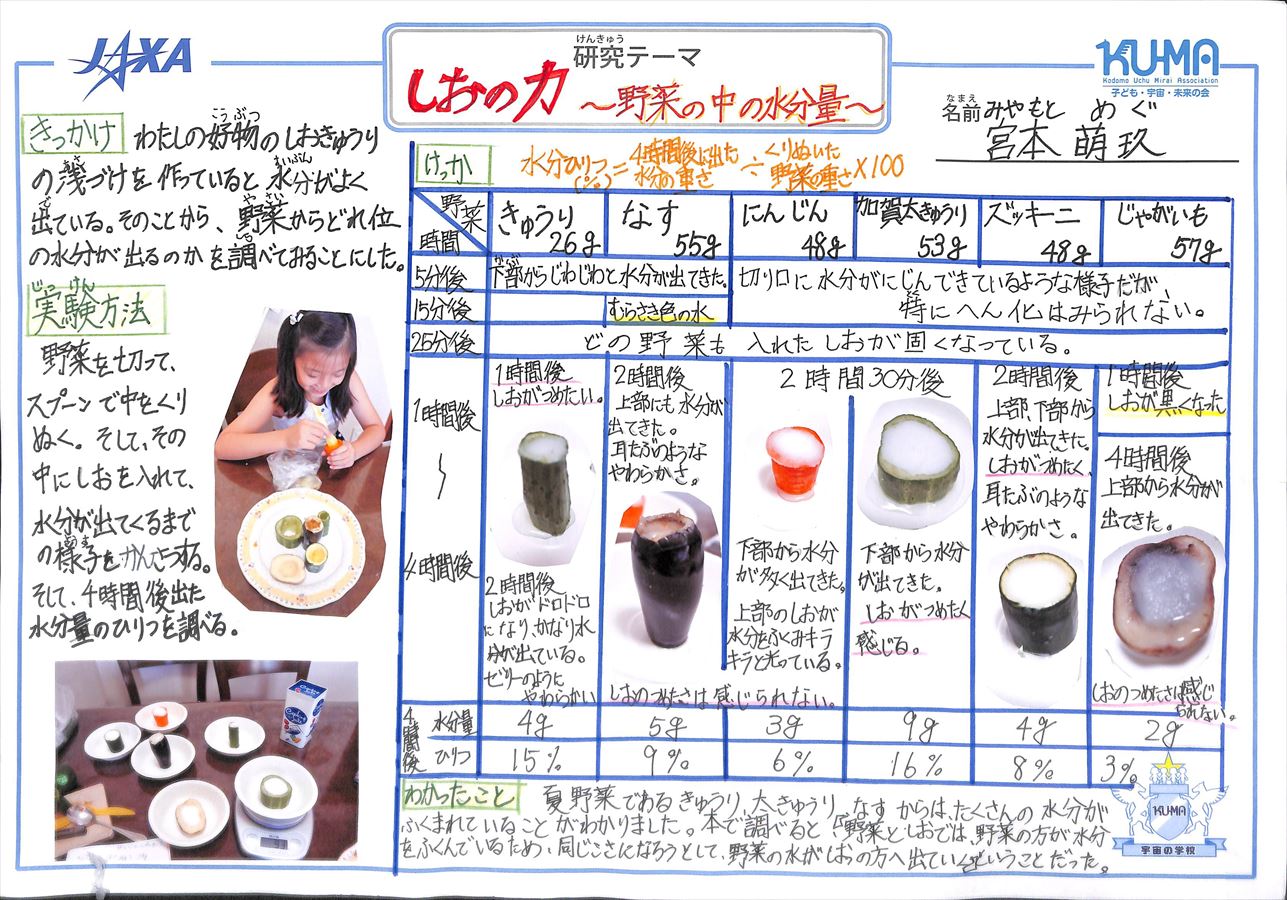 JAXA
けんきゅう
研究テーマ
しおの力 ～野菜の中の水分量～
KU-MA
Kodomo Uchu Mirai Association
子ども・宇宙・未来の会
なまえ みやもと めぐ
名前 宮本 萌玖
きっかけ わたしの好物のしおきゅうり
の浅づけを作っていると水分がよく
出ている。そのことから、野菜からどれ位
の水分が出るのかを調べてみることにした。
じっけん
実験方法
野菜を切って、
スプーンで中をくり
ぬく。そして、その
中にしおを入れて、
水分が出てくるまで
の様子をかんさつする。
そして、4時間後出た
水分量のひりつを調べる。
けっか
水分ひりつ(%)=4時間後に出た水分の重さ÷くりぬいた野菜の重さ×100
野菜 時間
きゅうり 26g
なす 55g
にんじん 48g
加賀太きゅうり 53g
ズッキーニ 48g
じゃがいも 57g
5分後
下部からじわじわと水分が出てきた。
切り口に水分がにじんできているような様子だが、
特にへん化はみられない。
15分後
むらさき色の水
25分後
どの野菜も入れたしおが固くなっている。
1時間後
〜
4時間後
1時間後
しおがつめたい。
2時間後
しおがドロドロ
になり、かなり水
分が出ている。
ゼリーのように
やわらかい
2時間後
上部にも水分が
出てきた。
耳たぶのような
やわらかさ。
しおのつめたさは感じられない。
2時間30分後
下部から水分
が多く出てきた。
上部のしおが
水分をふくみキラ
キラと光っている。
下部から水分
が出てきた。
しおがつめたく
感じる。
2時間後
上部、下部から
水分が出てきた。
しおがつめたく、
耳たぶのような
やわらかさ。
1時間後
しおが黒くなった
4時間後
上部から水分が
出てきた。
しおのつめたさは感じ
られない。
4時間後
水分量 4g 5g 3g 9g 4g 2g
ひりつ 15% 9% 6% 16% 8% 3%
わかったこと 夏野菜であるきゅうり、太きゅうり、なすからは、たくさんの水分が
ふくまれていることがわかりました。本で調べると、「野菜としおでは、野菜の方が水分
をふくんでいるため、同じこさになろうとして、野菜の水がしおの方へ出ていくということだった。
KU-MA
宇宙の学校